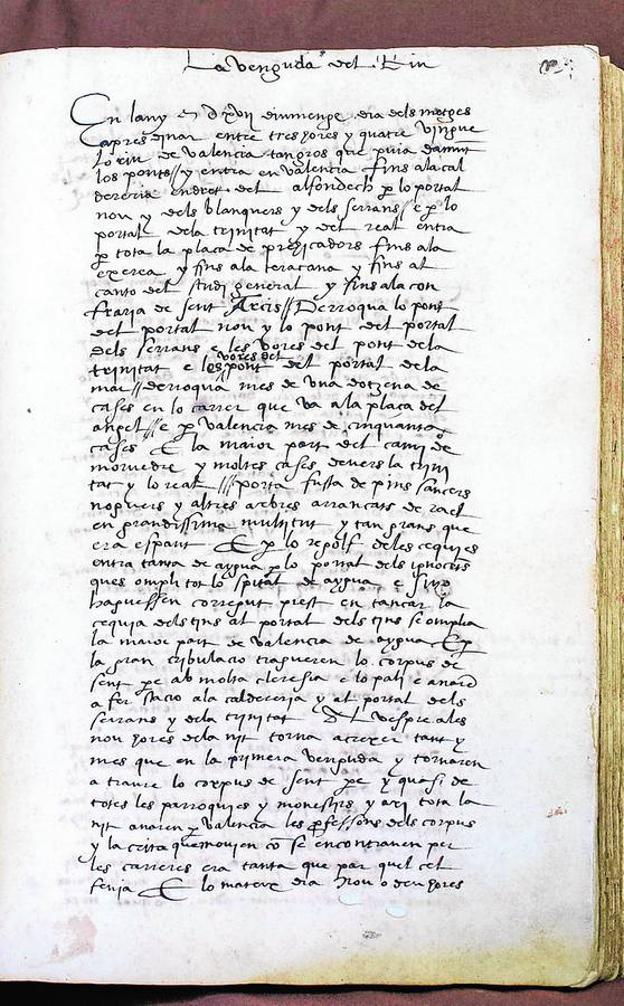 La venguda del Riu
En lany D xvii diumenge dia dels metges
apres dinar entre tres hores y quatre vingue
lo riu de valencia tan gros que puia damunt
los ponts // y entra en valencia fins ala cal
dereria endret del alfondech p lo portal
nou y dels blanquers y dels serrans // e p lo
portal dela trinitat y del real entra
p tota la plaça de prehicadors fins ala
exerea y fins ala teraçana y fins al
canto del studi general y fins ala con
fraria de sent // Derroqua lo pont
del portal nou y lo pont del portal
dels serrans e les vores del pont dela
trinitat e les vores del pont del portal dela
mar // derroqua mes de una dotzena de
cases en lo carrer que va ala plaça del
angel // e p valencia mes de cinquanta
cases E la maior part del cami de
morvedre y moltes cases devers la trini
tat y lo real /// porta fusta de pins sancers
noguers y altres arbres arrancats de rael
en grandissima multitut y tan grans que
era espant E p lo regolf deles cequies
entra tanta de aygua p lo portal dels ignocets
ques ompli tot lo spital de aygua e sino
haguessen corregut prest en tancar la
cequia dels tins al portal dels tins se omplia
la maior part de valencia de aygua E p
la gran tribulacio tragueren lo corpus de
sent pe ab molta cleresia e lo pali e anare
a fer stacio ala caldereria y al portal dels
serrans y dela trinitat Al vespre ales
nou hores dela nit torna acrexer tant y
mes que en la primera venguda y tornaren
a traure lo corpus de sent pe y quasi de
totes les parroquies y monestirs y axi tota la
nit anaren p valencia les pfessons dels corpus
y la crita que movien co se encontraven per
les carreres era tanta que par quel cel
fenia E lo mateix dia nou o deu hores